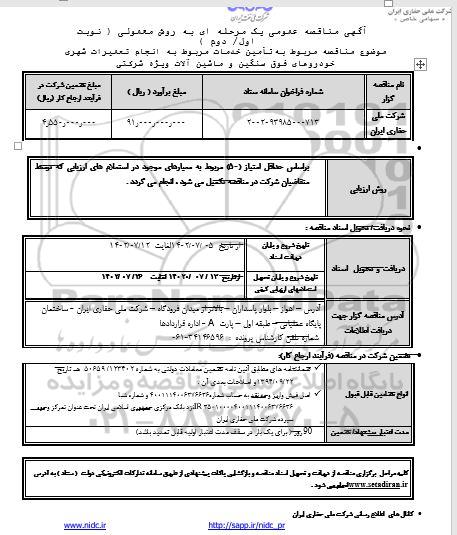 شرکت ملی حفاری ایران
- سهامی خاص -
آگهی مناقصه عمومی یک مرحله ای به روش معمولی ( نوبت
اول/ دوم )
موضوع مناقصه مربوط به تأمین خدمات مربوط به انجام تعمیرات شهری
خودروهای فوق سنگین و ماشین آلات ویژه شرکتی
نام مناقصه گزار
شماره فراخوان سامانه ستاد
مبلغ برآورد ( ریال )
مبلغ تضمین شرکت در فرآیند ارجاع کار (ریال)
شرکت ملی حفاری ایران
۲۰۰۲۰۹۳۹۸۵۰۰۰۷۱۳
۹۱٫۰۰۰٫۰۰۰٫۰۰۰
۴٫۵۵۰٫۰۰۰٫۰۰۰
روش ارزیابی
براساس حداقل امتیاز (۵۰) مربوط به معیارهای موجود در استعلام های ارزیابی که توسط
متقاضیان شرکت در مناقصه تکمیل می شود ، انجام می گردد .
نحوه دریافت/ تحویل اسناد مناقصه :
دریافت و تحویل اسناد
تاریخ شروع و پایان دریافت اسناد
از تاریخ ۱۴۰۲/۰۷/۰۵ لغایت ۱۴۰۲/۰۷/۱۲
تاریخ شروع و پایان تحویل استعلامهای ارزیابی کیفی
از تاریخ ۱۴۰۲/۰۷/۱۳ لغایت ۱۴۰۲/۰۷/۲۶
آدرس مناقصه گزار جهت دریافت اطلاعات
آدرس – اهواز – بلوار پاسداران – بالاتر از میدان فرودگاه – شرکت ملی حفاری ایران – ساختمان
پایگاه عملیاتی – طبقه اول – پارت A - اداره قراردادها
شماره تلفن کارشناس پرونده : ۰۶۱-۳۴۱۴۶۵۹۶
تضمین شرکت در مناقصه (فرآیند ارجاع کار):
انواع تضامین قابل قبول
ضمانتنامه های مطابق آئین نامه تضمین معاملات دولتی به شماره ۱۲۳۴۰۲/ت۵۰۶۵۹ هـ تاریخ
۱۳۹۴/۰۹/۲۲ و اصلاحات بعدی آن .
اصل فیش واریز وجه نقد به حساب شماره ۴۰۰۱۱۱۴۰۰۶۳۷۶۶۳۶ و شماره شبا
نزد بانک مرکزی جمهوری اسلامی ایران تحت عنوان تمرکز وجوه
سپرده شرکت ملی حفاری ایران
مدت اعتبار پیشنهاد/ تضمین
90 روز ( برای یک بار در سقف مدت اعتبار اولیه قابل تمدید باشد)
کلیه مراحل برگزاری مناقصه از دریافت و تحویل اسناد مناقصه و بازگشایی پاکات پیشنهادی از طریق سامانه تدارکات الکترونیکی دولت ( ستاد ) به آدرس
www.setadiran.ir انجام می شود .
کانال های اطلاع رسانی شرکت ملی حفاری ایران
www.nidc.ir http://sapp.ir/nidc_pr